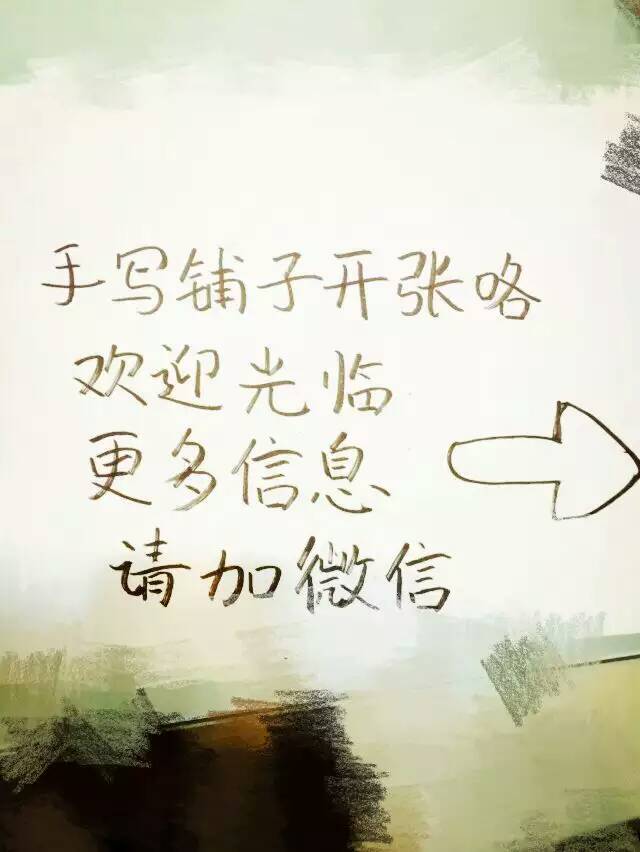 手写铺子开张咯
欢迎光临
更多信息
请加微信